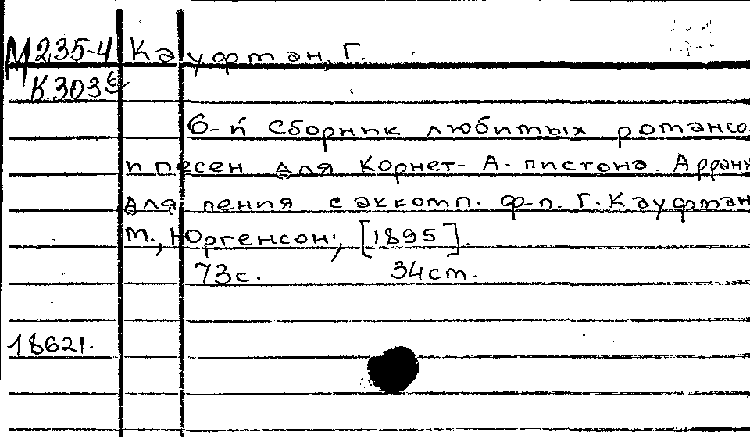 М235-4 Кауфман, Г.
К303б
6-й сборник любимых романсо
и песен для корнет-А-пистона. Арран
для пения с аккомп. ф-п. Г. Кауфман
М., Юргенсон, [1895].
73с. 34см.
18621.